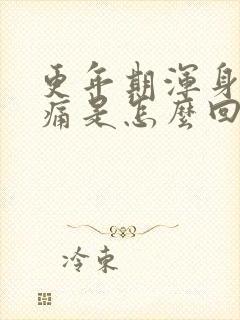 更年期渾身
痛是怎麼回
冷東